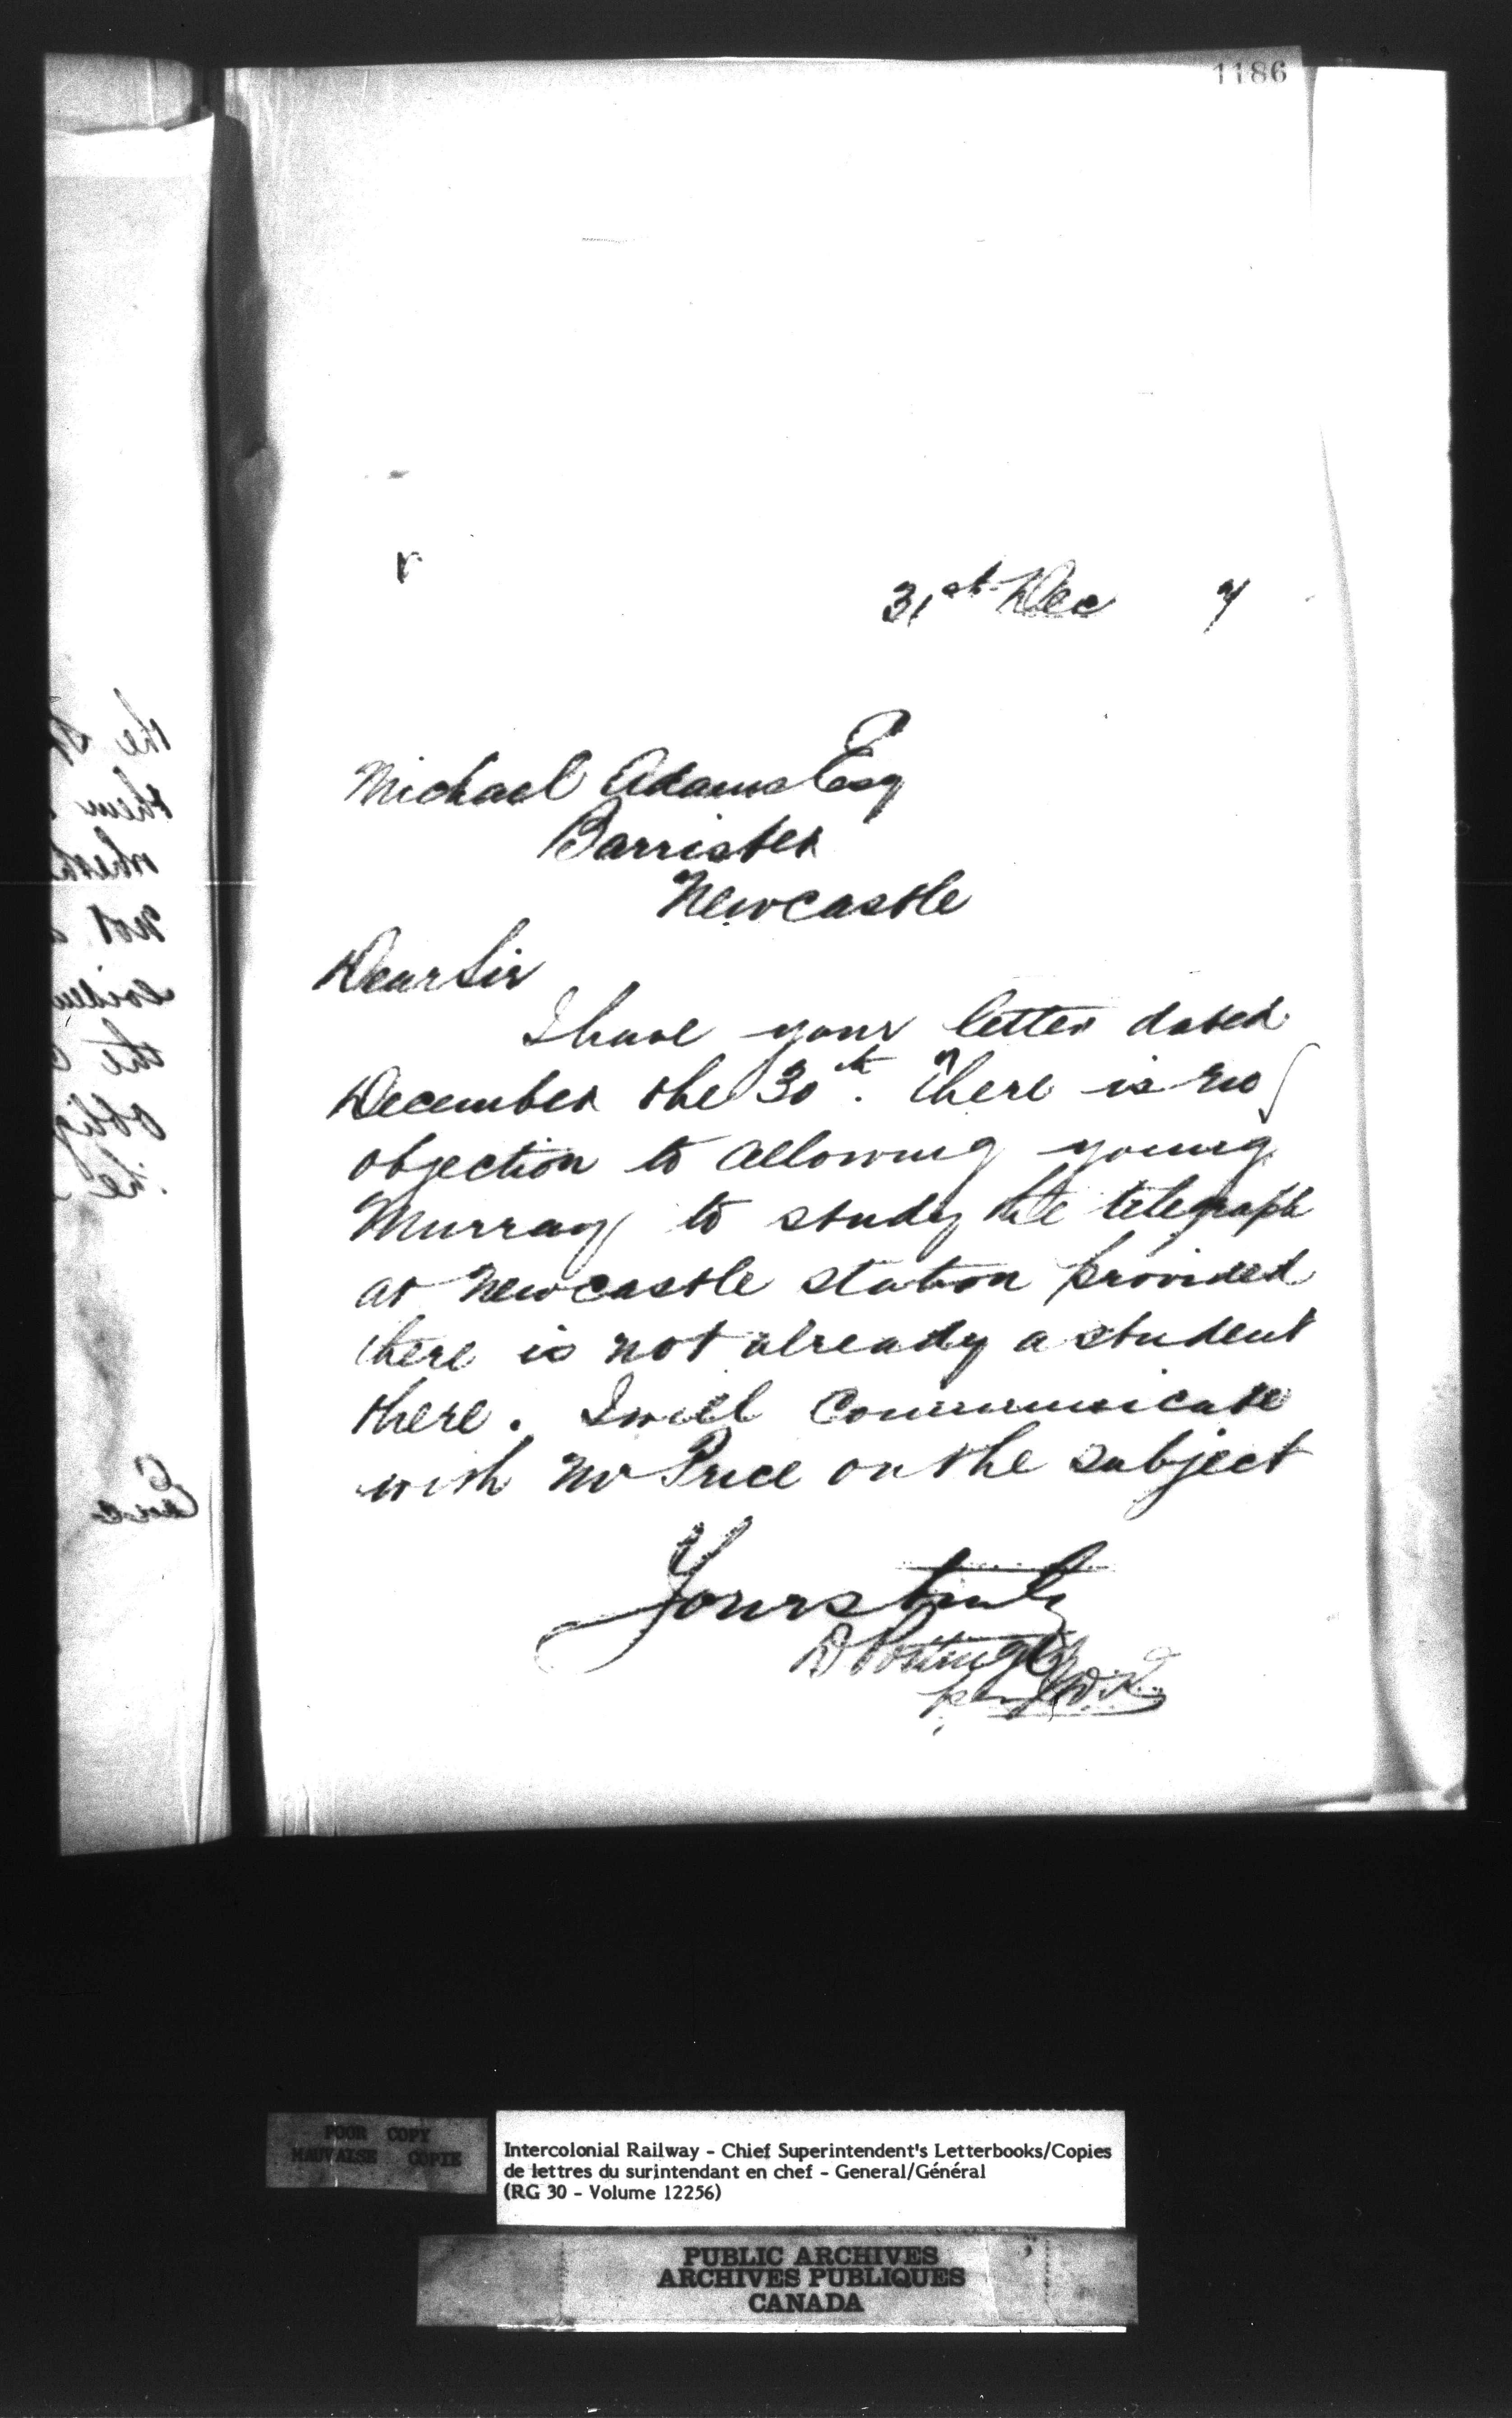 1186
31st Dec 7
Michael Adams Esq
Barrister
Newcastle
Dear Sir
I have your letter dated
December the 30th. There is no
objection to allowing young
Murray to study the telegraph
at Newcastle station provided
there is not already a student
there. I will communicate
with Mr Price on the subject
Yours truly
D Pottinger
per
POOR COPY
MAUVAISE COPIE
Intercolonial Railway - Chief Superintendent's Letterbooks/Copies
de lettres du surintendant en chef - General/Général
(RG 30 - Volume 12256)
PUBLIC ARCHIVES
ARCHIVES PUBLIQUES
CANADA